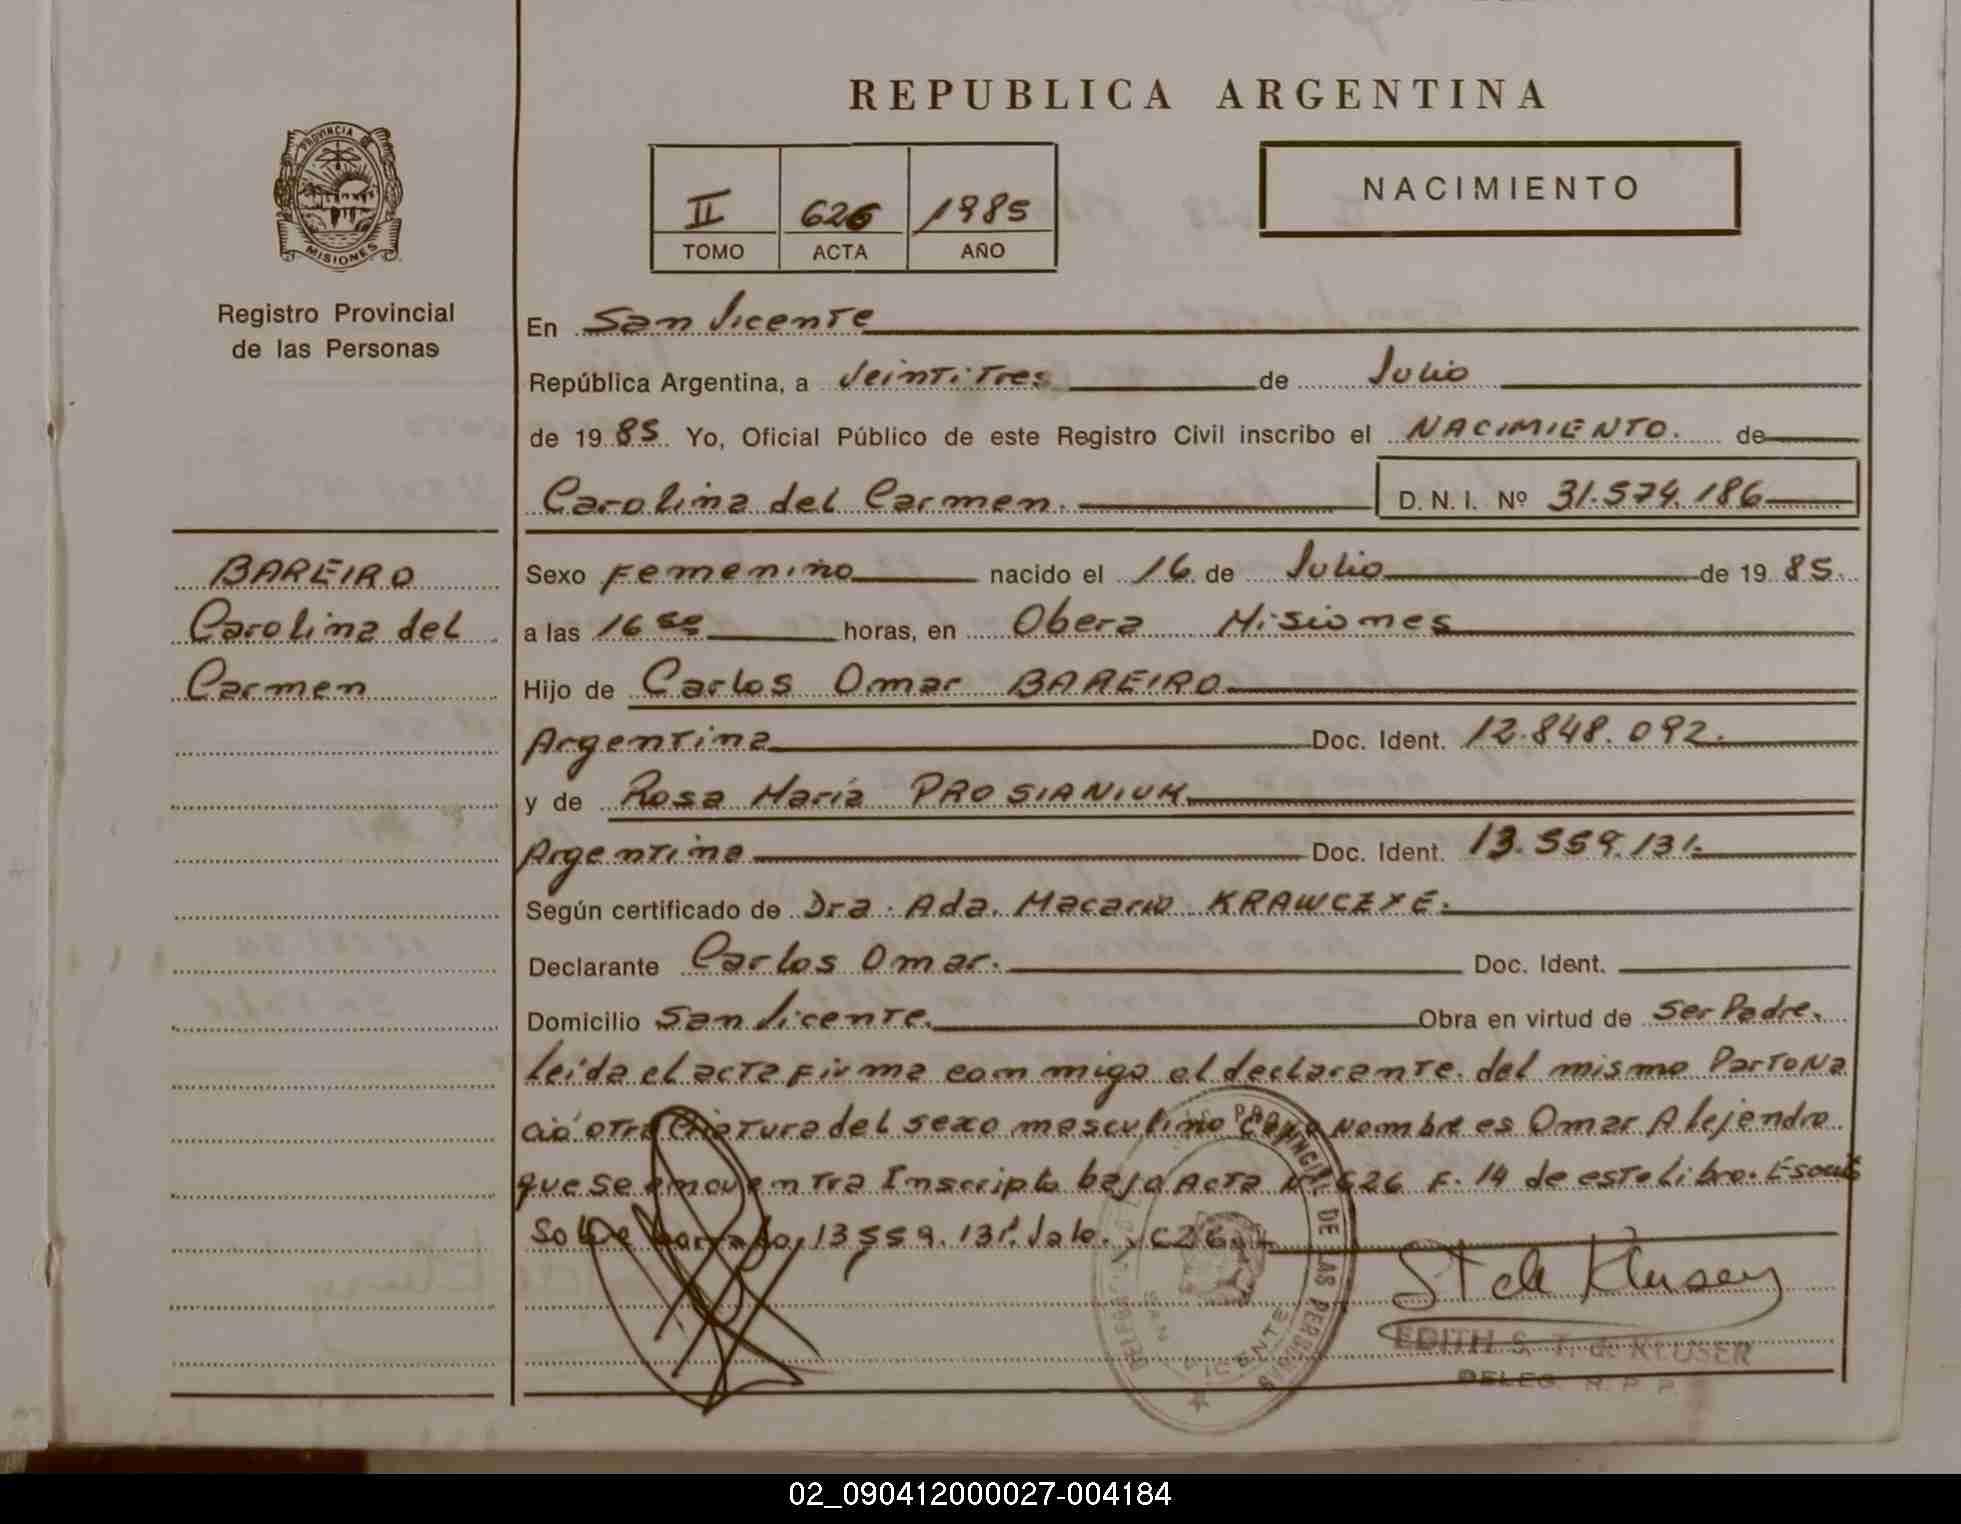 REPUBLICA ARGENTINA
PROVINCIA DE
MISIONES
Registro Provincial
de las Personas
II 626 1985
TOMO ACTA AÑO
NACIMIENTO
En San Vicente
República Argentina, a Veintitres de Julio
de 1985. Yo, Oficial Público de este Registro Civil inscribo el NACIMIENTO. de
Carolina del Carmen. D. N. I. Nº 31.574.186
BAREIRO
Carolina del
Carmen
Sexo Femenino nacido el 16 de Julio de 1985.
a las 16 horas, en Obera Misiones
Hijo de Carlos Omar BAREIRO
Argentina Doc. Ident. 12.848.092.
y de Rosa María PROSIANIUK
Argentina Doc. Ident. 13.559.131.
Según certificado de Dra. Ada. Macario KRAWCZYE.
Declarante Carlos Omar. Doc. Ident.
Domicilio San Vicente. Obra en virtud de Ser Padre.
Leida el acta firma conmigo el declarante. del mismo Parto Na
ció otra Criatura del sexo masculino Cuyo Nombre es Omar Alejendro
que se encuentra Inscripto bajo Acta Nº 626 F. 14 de este Libro.
Sobre 13.559.131. Vale.
St de Kluser
EDITH S. T. de KLUSER
DELEG. R. P. P.
PROVINCIAL DE LAS PERSONAS
SAN VICENTE
02_090412000027-004184